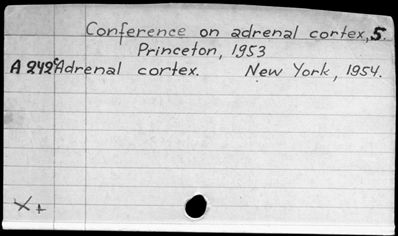 Conference on adrenal cortex, 5.
Princeton, 1953
A 242c Adrenal cortex. New York, 1954.
X +